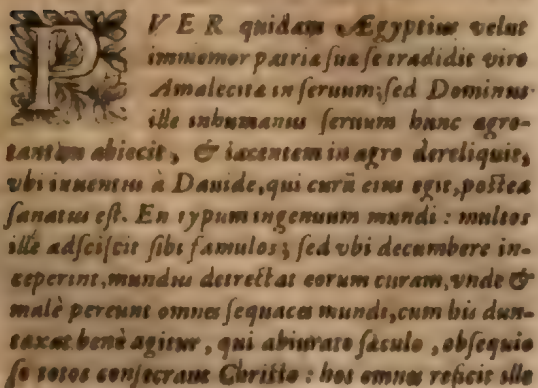 PVER quidam Ægyptius velut
immemor patriæ suæ se tradidit viro
Amalecitæ in seruum; sed Dominus
ille inhumanus seruum hunc ægro-
tantem abiecit, & iacentem in agro dereliquit,
vbi inuentus à Dauide, qui curã eius egit, postea
sanatus est. En typum ingenuum mundi: multos
ille adsciscit sibi famulos; sed vbi decumbere in-
ceperint, mundus detrectat eorum curam, vnde &
malè pereunt omnes sequaces mundi, cum his dun-
taxat benè agitur, qui abiurato sæculo, obsequio
se totos consecrant Christo: hos omnes reficit ille